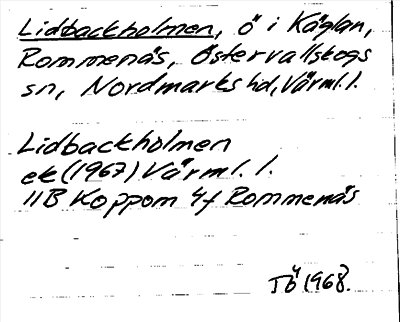 Lidbackholmen, ö i Käglan,
Rommenäs, Östervallskogs
sn, Nordmarks hd, Värml. l.
Lidbackholmen
ek (1967) Värml. l.
11B Koppom 4f Rommenäs
TÖ 1968.